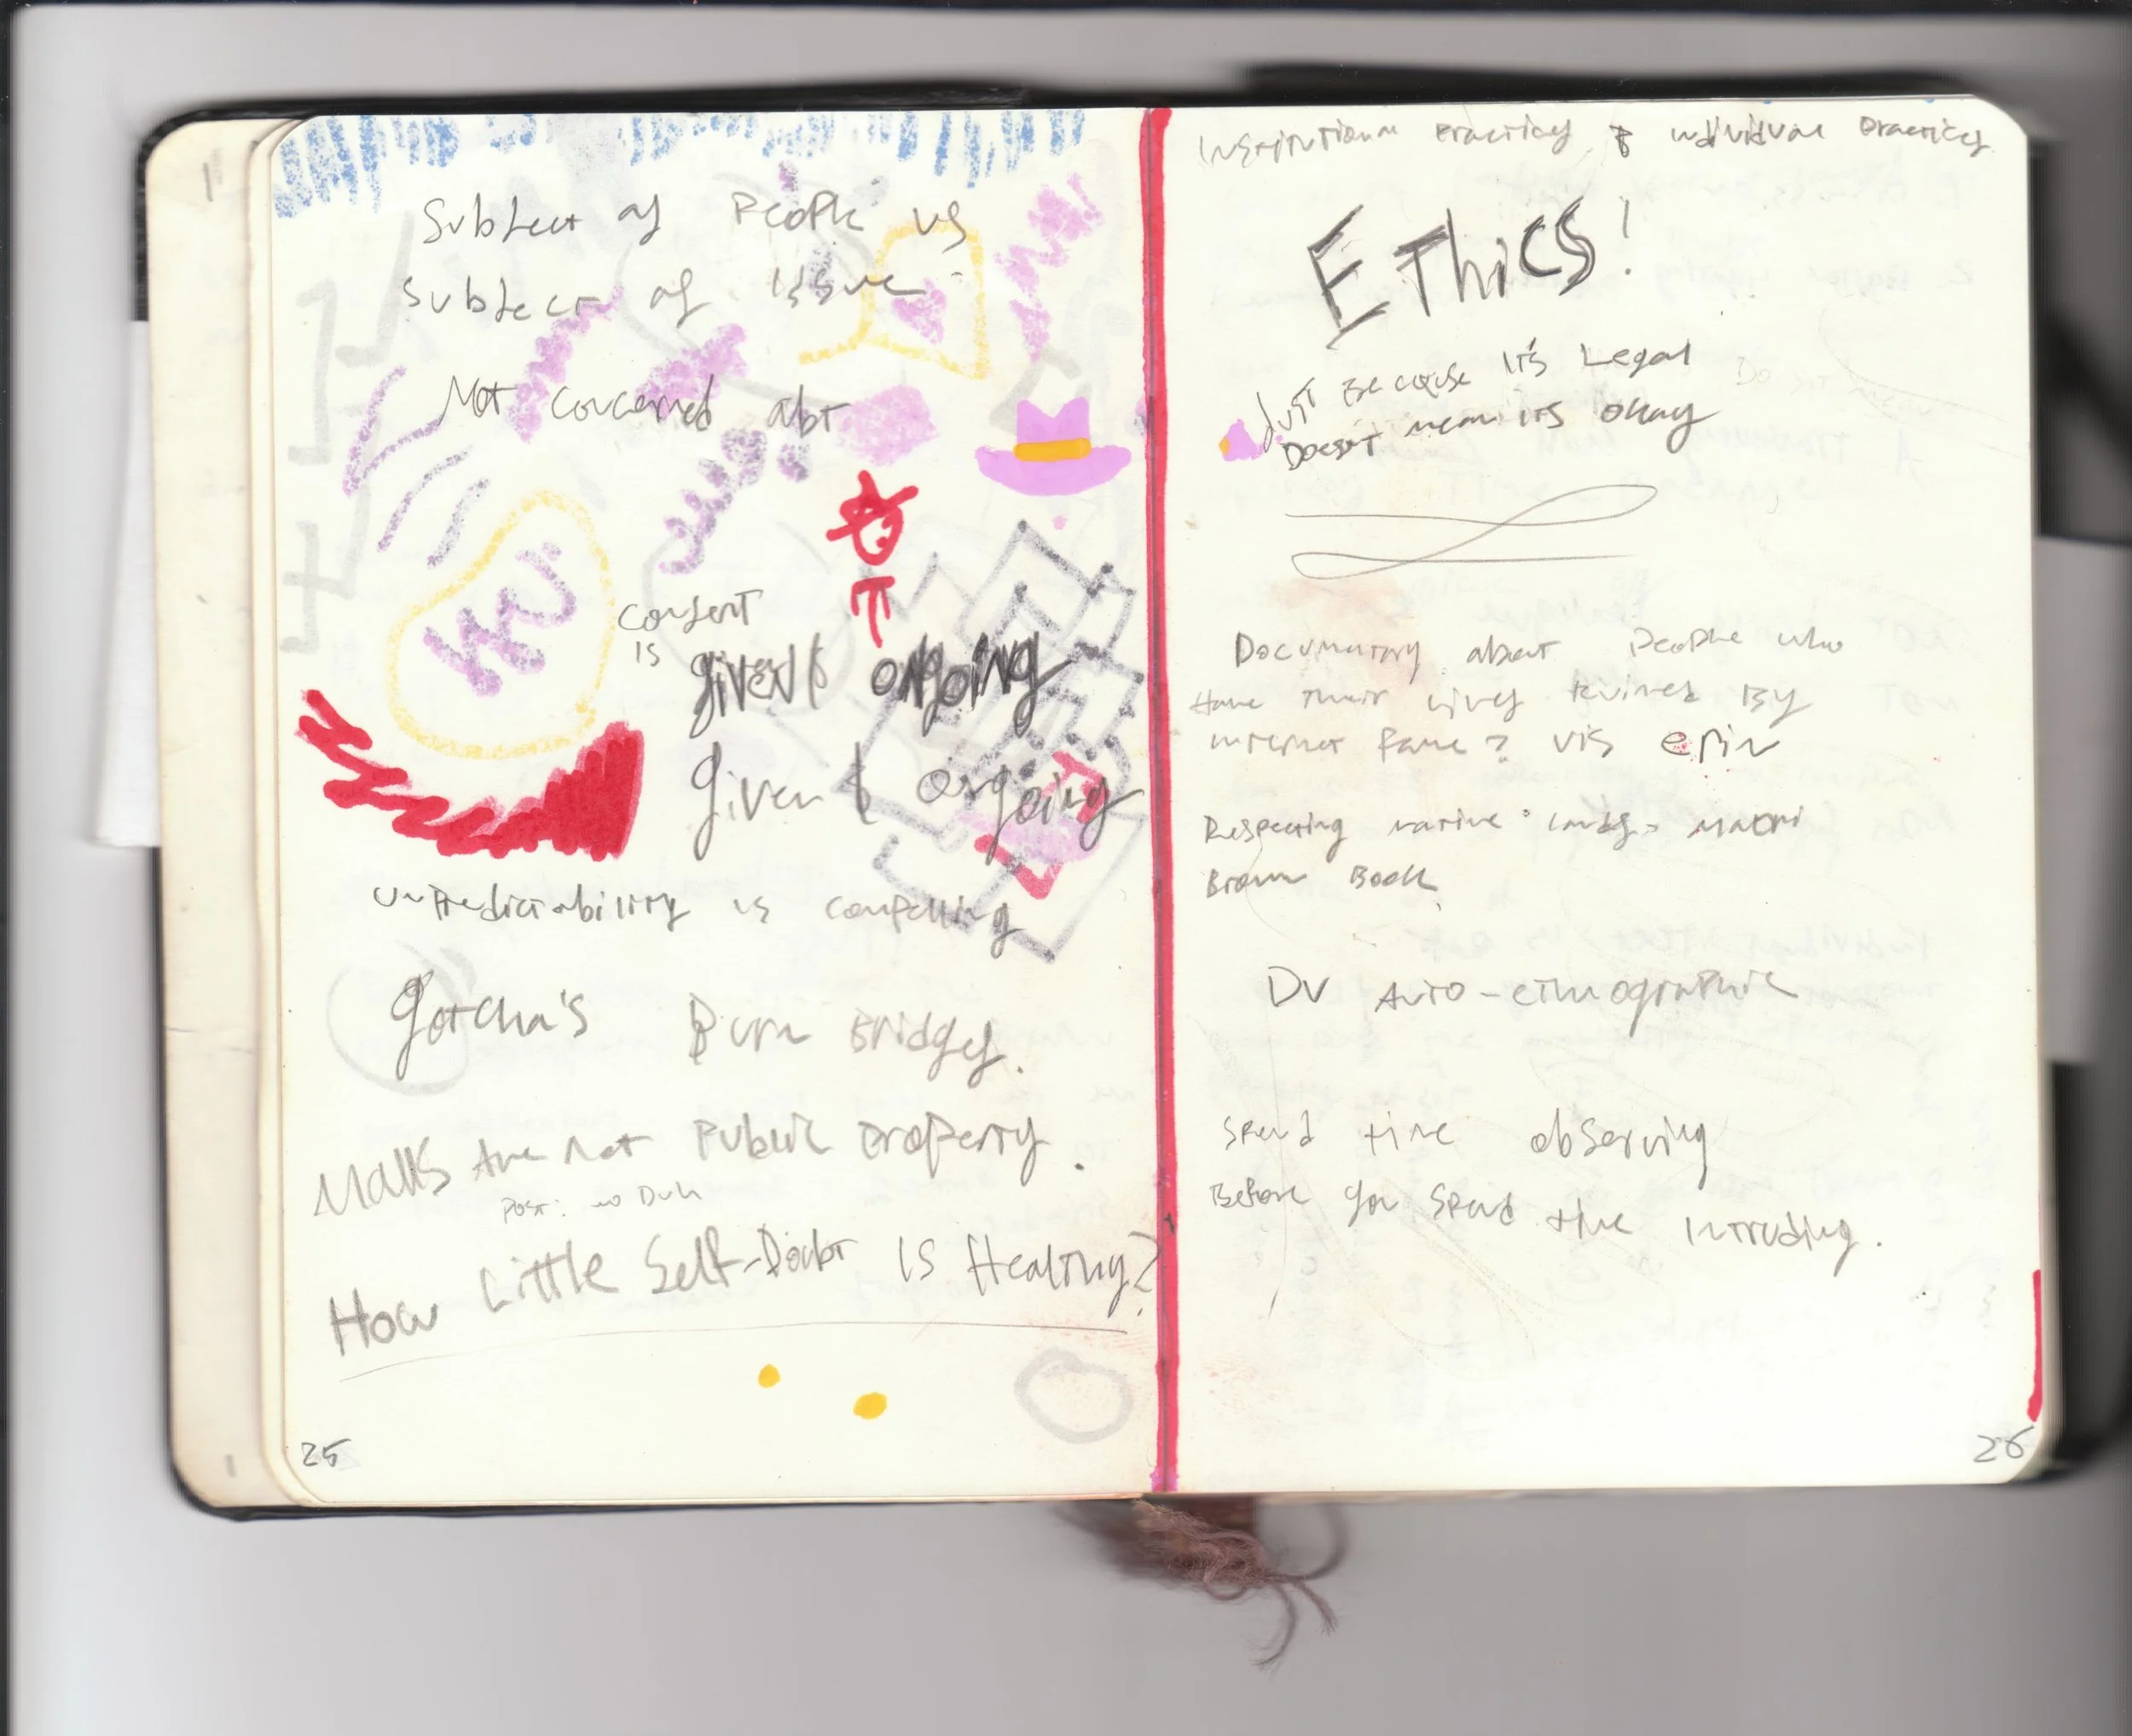 Subject of People vs
Subject of Issue
Not concerned abt
consent
is
given & ongoing
given & ongoing
unpredictability is compelling
Gotcha's Burn Bridges.
Malls Are not Public Property.
Post: no Duh
How Little Self-Doubt is Healthy?
25
Institutional Practices & individual Practices
EThics!
Just Because it's Legal
Doesn't mean its okay
Documentary about People who
Have their lives Ruined By
internet fame? vis
Respecting native lands - Maori
Brown Book
DV Auto-ethnographic
Spend time observing
Before you spend time intruding.
26